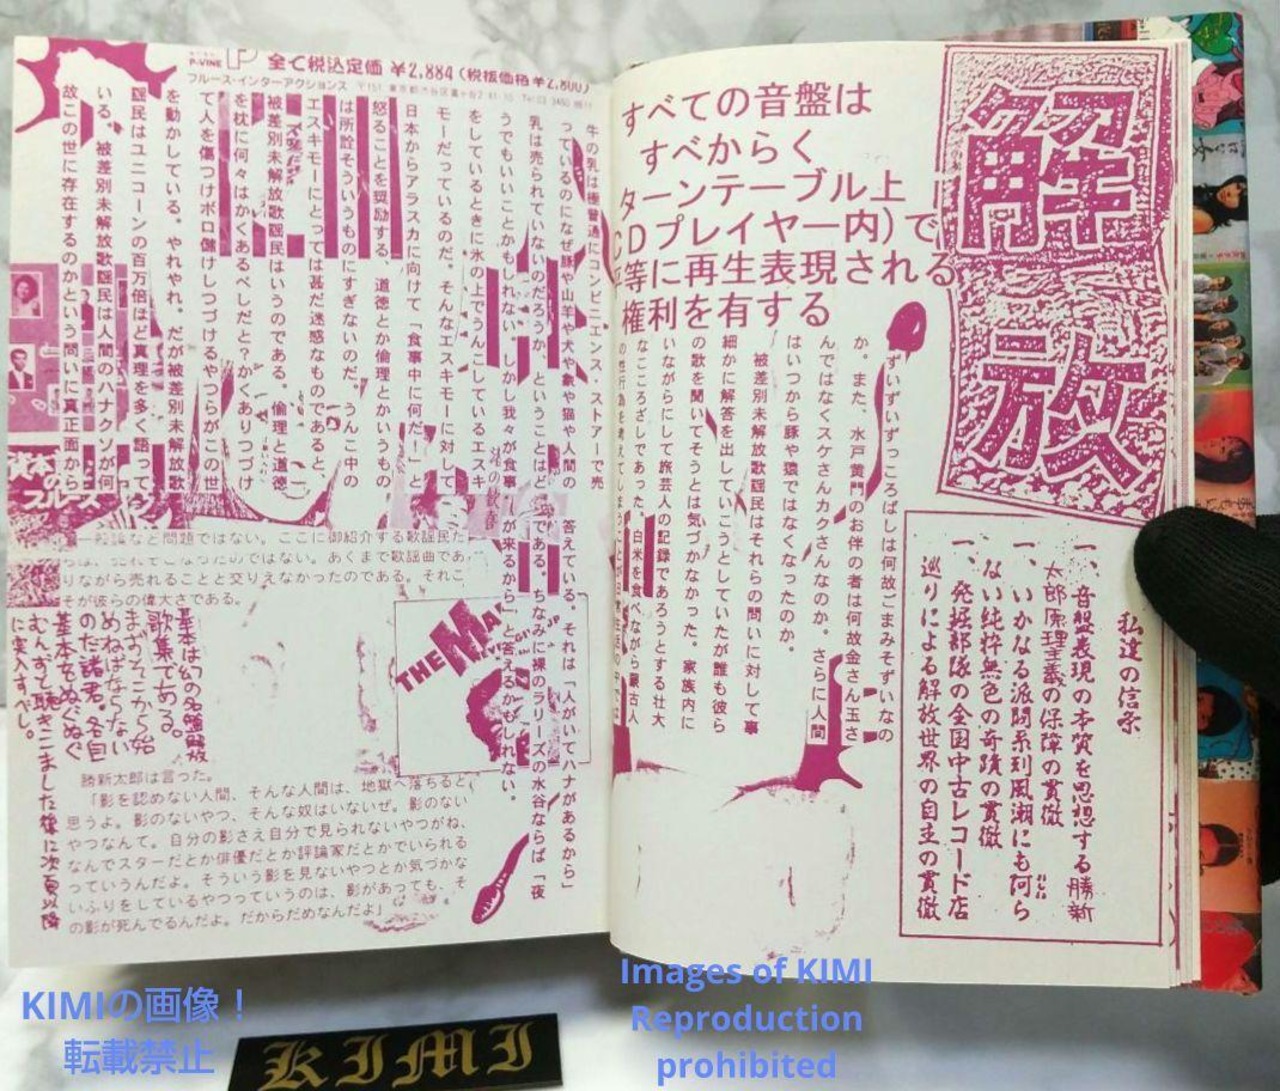 解放
すべての音盤は
すべからく
ターンテーブル上
CDプレイヤー内)で
平等に再生表現される
権利を有する
私達の信条
一、音盤表現の本質を思想する勝新
太郎原理主義の保障の貫徹
一、いかなる派閥系列風潮にも何ら
ない純粋無色の奇蹟の貫徹
一、発掘部隊の全国中古レコード店
巡りによる解放世界の自主の貫徹
ずいずいずっころばしは何故ごまみそずいなの
か。また、水戸黄門のお伴の者は何故金さん玉さ
んではなくスケさんカクさんなのか。さらに人間
はいつから豚や猿ではなくなったのか。
被差別未解放歌謡民はそれらの問いに対して事
細かに解答を出していこうとしていたが誰も彼ら
の歌を聞いてそうとは気づかなかった。家族内に
いながらにして旅芸人の記録であろうとする壮大
なこころざしであった。白米を食べながら蒙古人
P-VINE
全て税込定価 ¥2,884(税抜価格¥2,800)
ブルース・インターアクションズ
牛の乳は極普通にコンビニエンス・ストアーで売
っているのになぜ豚や山羊や犬や象や猫や人間の
乳は売られていないのだろうか、ということはど
うでもいいことかもしれない。しかし我々が食事
をしているときに氷の上でうんこしているエスキ
モーだっているのだ。そんなエスキモーに対して
日本からアラスカに向けて「食事中に何だ!」と
怒ることを奨励する、道徳とか倫理とかいうもの
は所詮そういうものにすぎないのだ。うんこ中の
エスキモーにとっては甚だ迷惑なものであると、
被差別未解放歌謡民はいうのである。倫理と道徳
を枕に何々はかくあるべしだと?かくありつづけ
て人を傷つけボロ儲けしつづけるやつらがこの世
を動かしている。やれやれ。だが被差別未解放歌
謡民はユニコーンの百万倍ほど真理を多く語って
いる。被差別未解放歌謡民は人間のハナクソが何
故この世に存在するのかという問いに真正面から
答えている。それは「人がいてハナがあるから」
である。ちなみに裸のラリーズの水谷ならば「夜
が来るから」と答えるかもしれない。
一般論など問題ではない。ここに御紹介する歌謡民た
りながら売れることと交りえなかったのである。それこ
そが彼らの偉大さである。
THE
基本は幻の名盤解放
歌集である。
まずそこから始
めねばならない
のだ諸君。各自
基本をぬぐぬぐ
むんずと聴きこました後に次頁以降
に突入すべし。
勝新太郎は言った。
「影を認めない人間、そんな人間は、地獄へ落ちると
思うよ。影のないやつ、そんな奴はいないぜ。影のない
やつなんて。自分の影さえ自分で見られないやつがね、
なんでスターだとか俳優だとか評論家だとかでいられる
っていうんだよ。そういう影を見ないやつとか気づかな
いふりをしているやつっていうのは、影があっても、そ
の影が死んでるんだよ。だからだめなんだよ」
KIMIの画像!
転載禁止
KIMI
Images of KIMI
Reproduction
prohibited